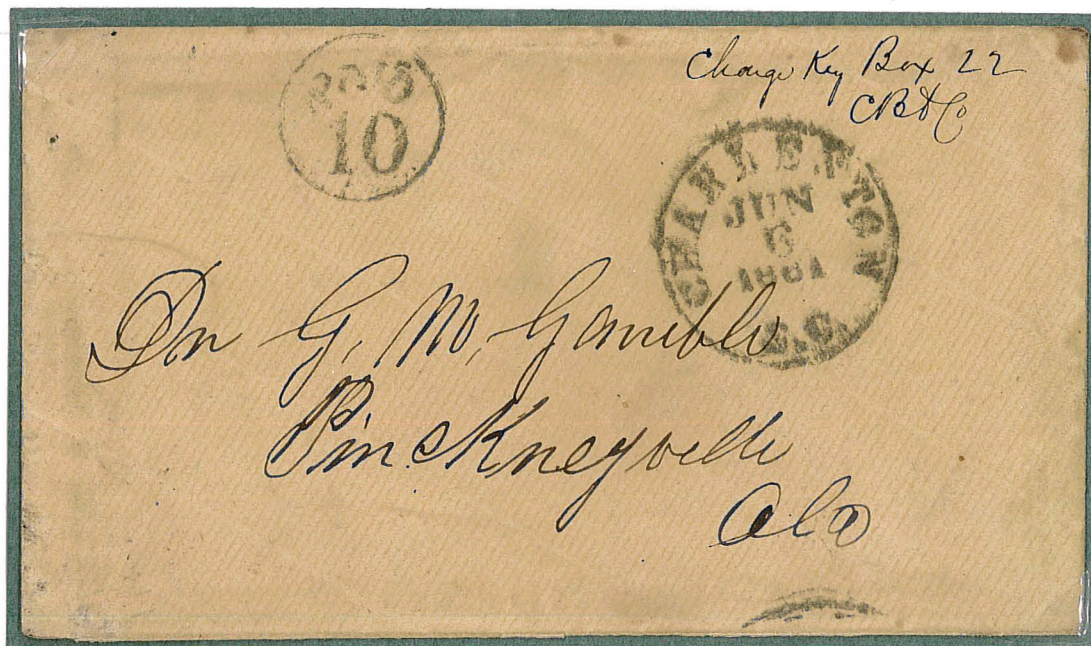 PAID
10
Charge Key Box 22
CB & Co
CHARLESTON
JUN
6
1861
S.C.
Dr G. M. Gamble
Pinckneyville
Ala